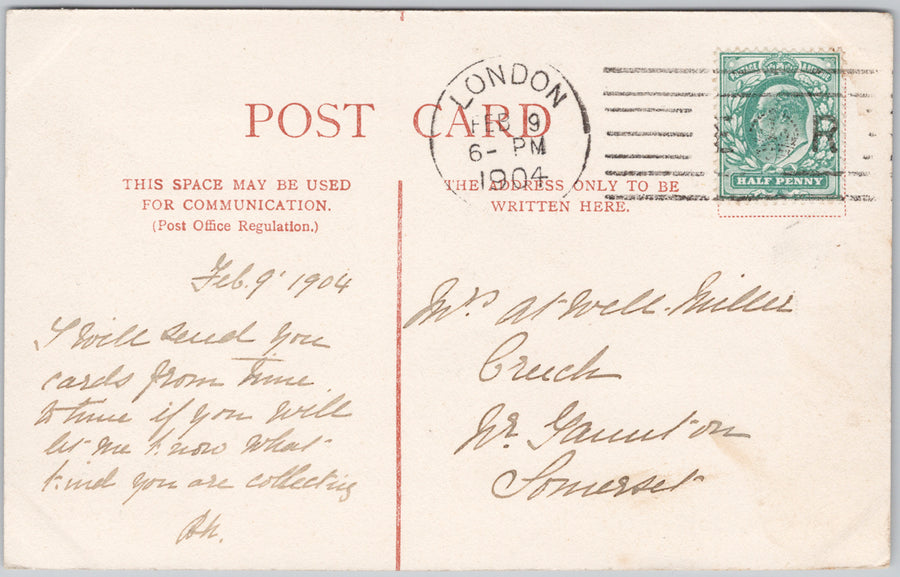 POST CARD
THIS SPACE MAY BE USED
FOR COMMUNICATION.
(Post Office Regulation.)
THE ADDRESS ONLY TO BE
WRITTEN HERE.
LONDON
FEB 9
6- PM
1904
E R
POSTAGE REVENUE
HALF PENNY
Feb. 9' 1904
I will send you
cards from time
to time if you will
let me know what
kind you are collecting
Mrs Atwell-Miller
Creech
Nr. Taunton
Somerset